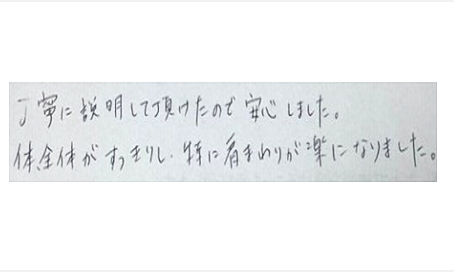 丁寧に説明して頂けたので安心しました。
体全体がすっきりし、特に肩まわりが楽になりました。